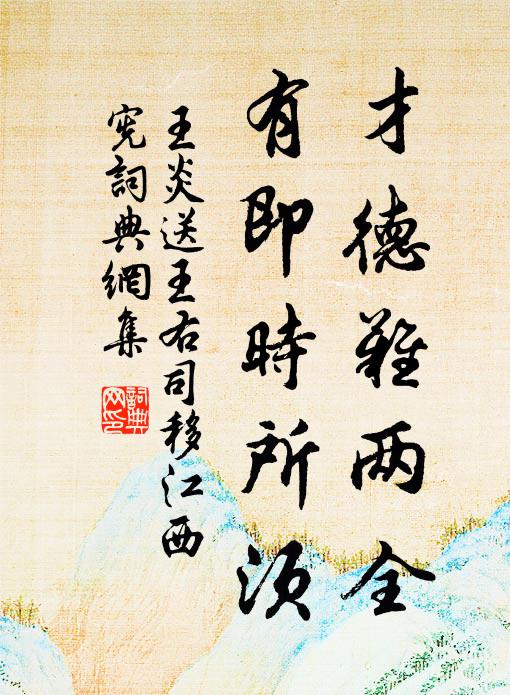 才德難两全
有即時所須
王炎送王右司移江西
宪詞典網集
詞典
网印